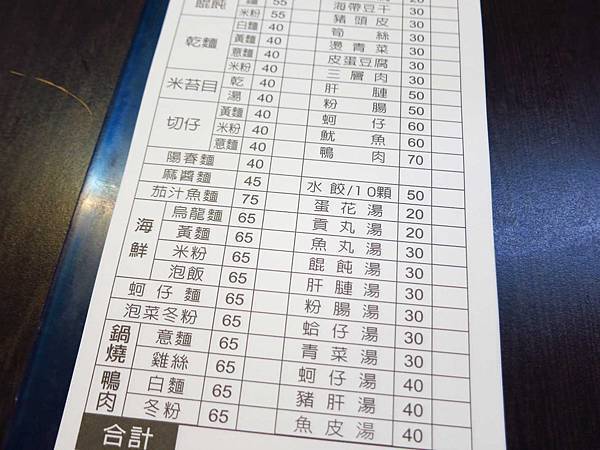 餛飩
麵 55
米粉 55
乾麵
白麵 40
黃麵 40
意麵 40
米粉 40
米苔目
乾 40
湯 40
切仔
黃麵 40
米粉 40
意麵 40
陽春麵 40
麻醬麵 45
茄汁魚麵 75
海鮮
烏龍麵 65
黃麵 65
米粉 65
泡飯 65
蚵仔麵 65
泡菜冬粉 65
鍋燒
意麵 65
雞絲 65
鴨肉
白麵 65
冬粉 65
合計
海帶豆干 20
豬頭皮 30
筍絲 30
燙青菜 30
皮蛋豆腐 30
三層肉 30
肝腱 50
粉腸 50
蚵仔 60
魷魚 60
鴨肉 70
水餃/10顆 50
蛋花湯 20
貢丸湯 20
魚丸湯 30
餛飩湯 30
肝腱湯 30
粉腸湯 30
蛤仔湯 30
青菜湯 30
蚵仔湯 40
豬肝湯 40
魚皮湯 40